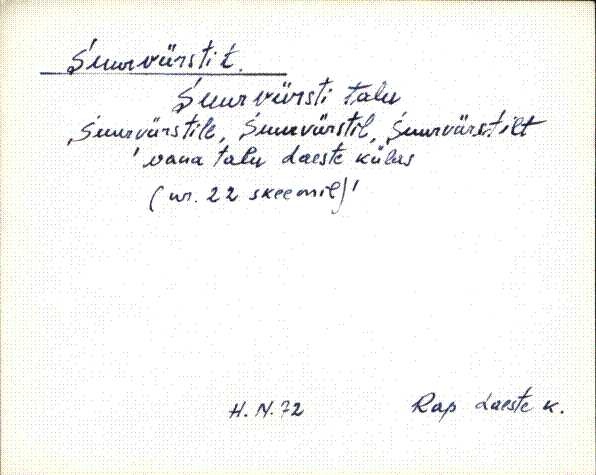 Śuurvürstit.
Śuurvürsti talu
Śuurvürstile, Śuurvürstil, Śuurvürstilt
'vana talu Laeste külas
(nr. 22 skeemil)'
H. N. 72
Rap Laeste k.